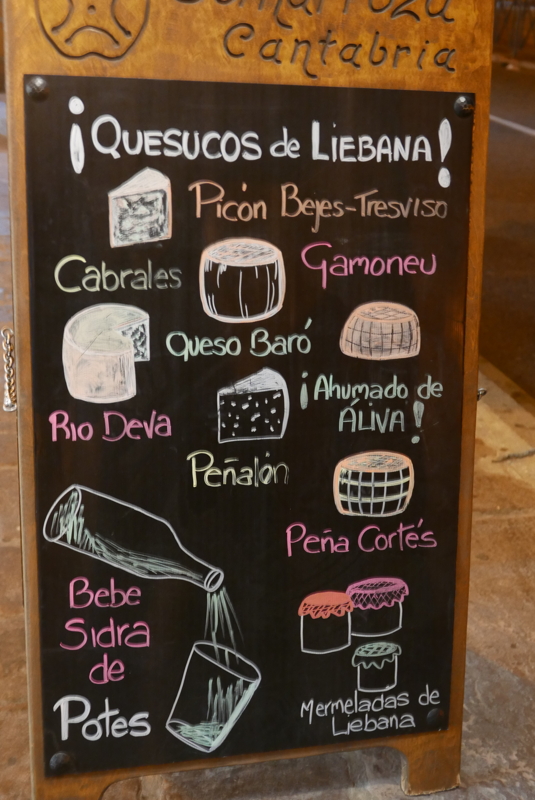 Cantabria
¡QUESUCOS de LIEBANA!
Picón Bejes-Tresviso
Cabrales
Gamoneu
Queso Baró
¡Ahumado de
ÁLIVA!
RIO DEVA
Peñalón
Peña Cortés
Bebe
Sidra
de
Potes
Mermeladas de
Liebana